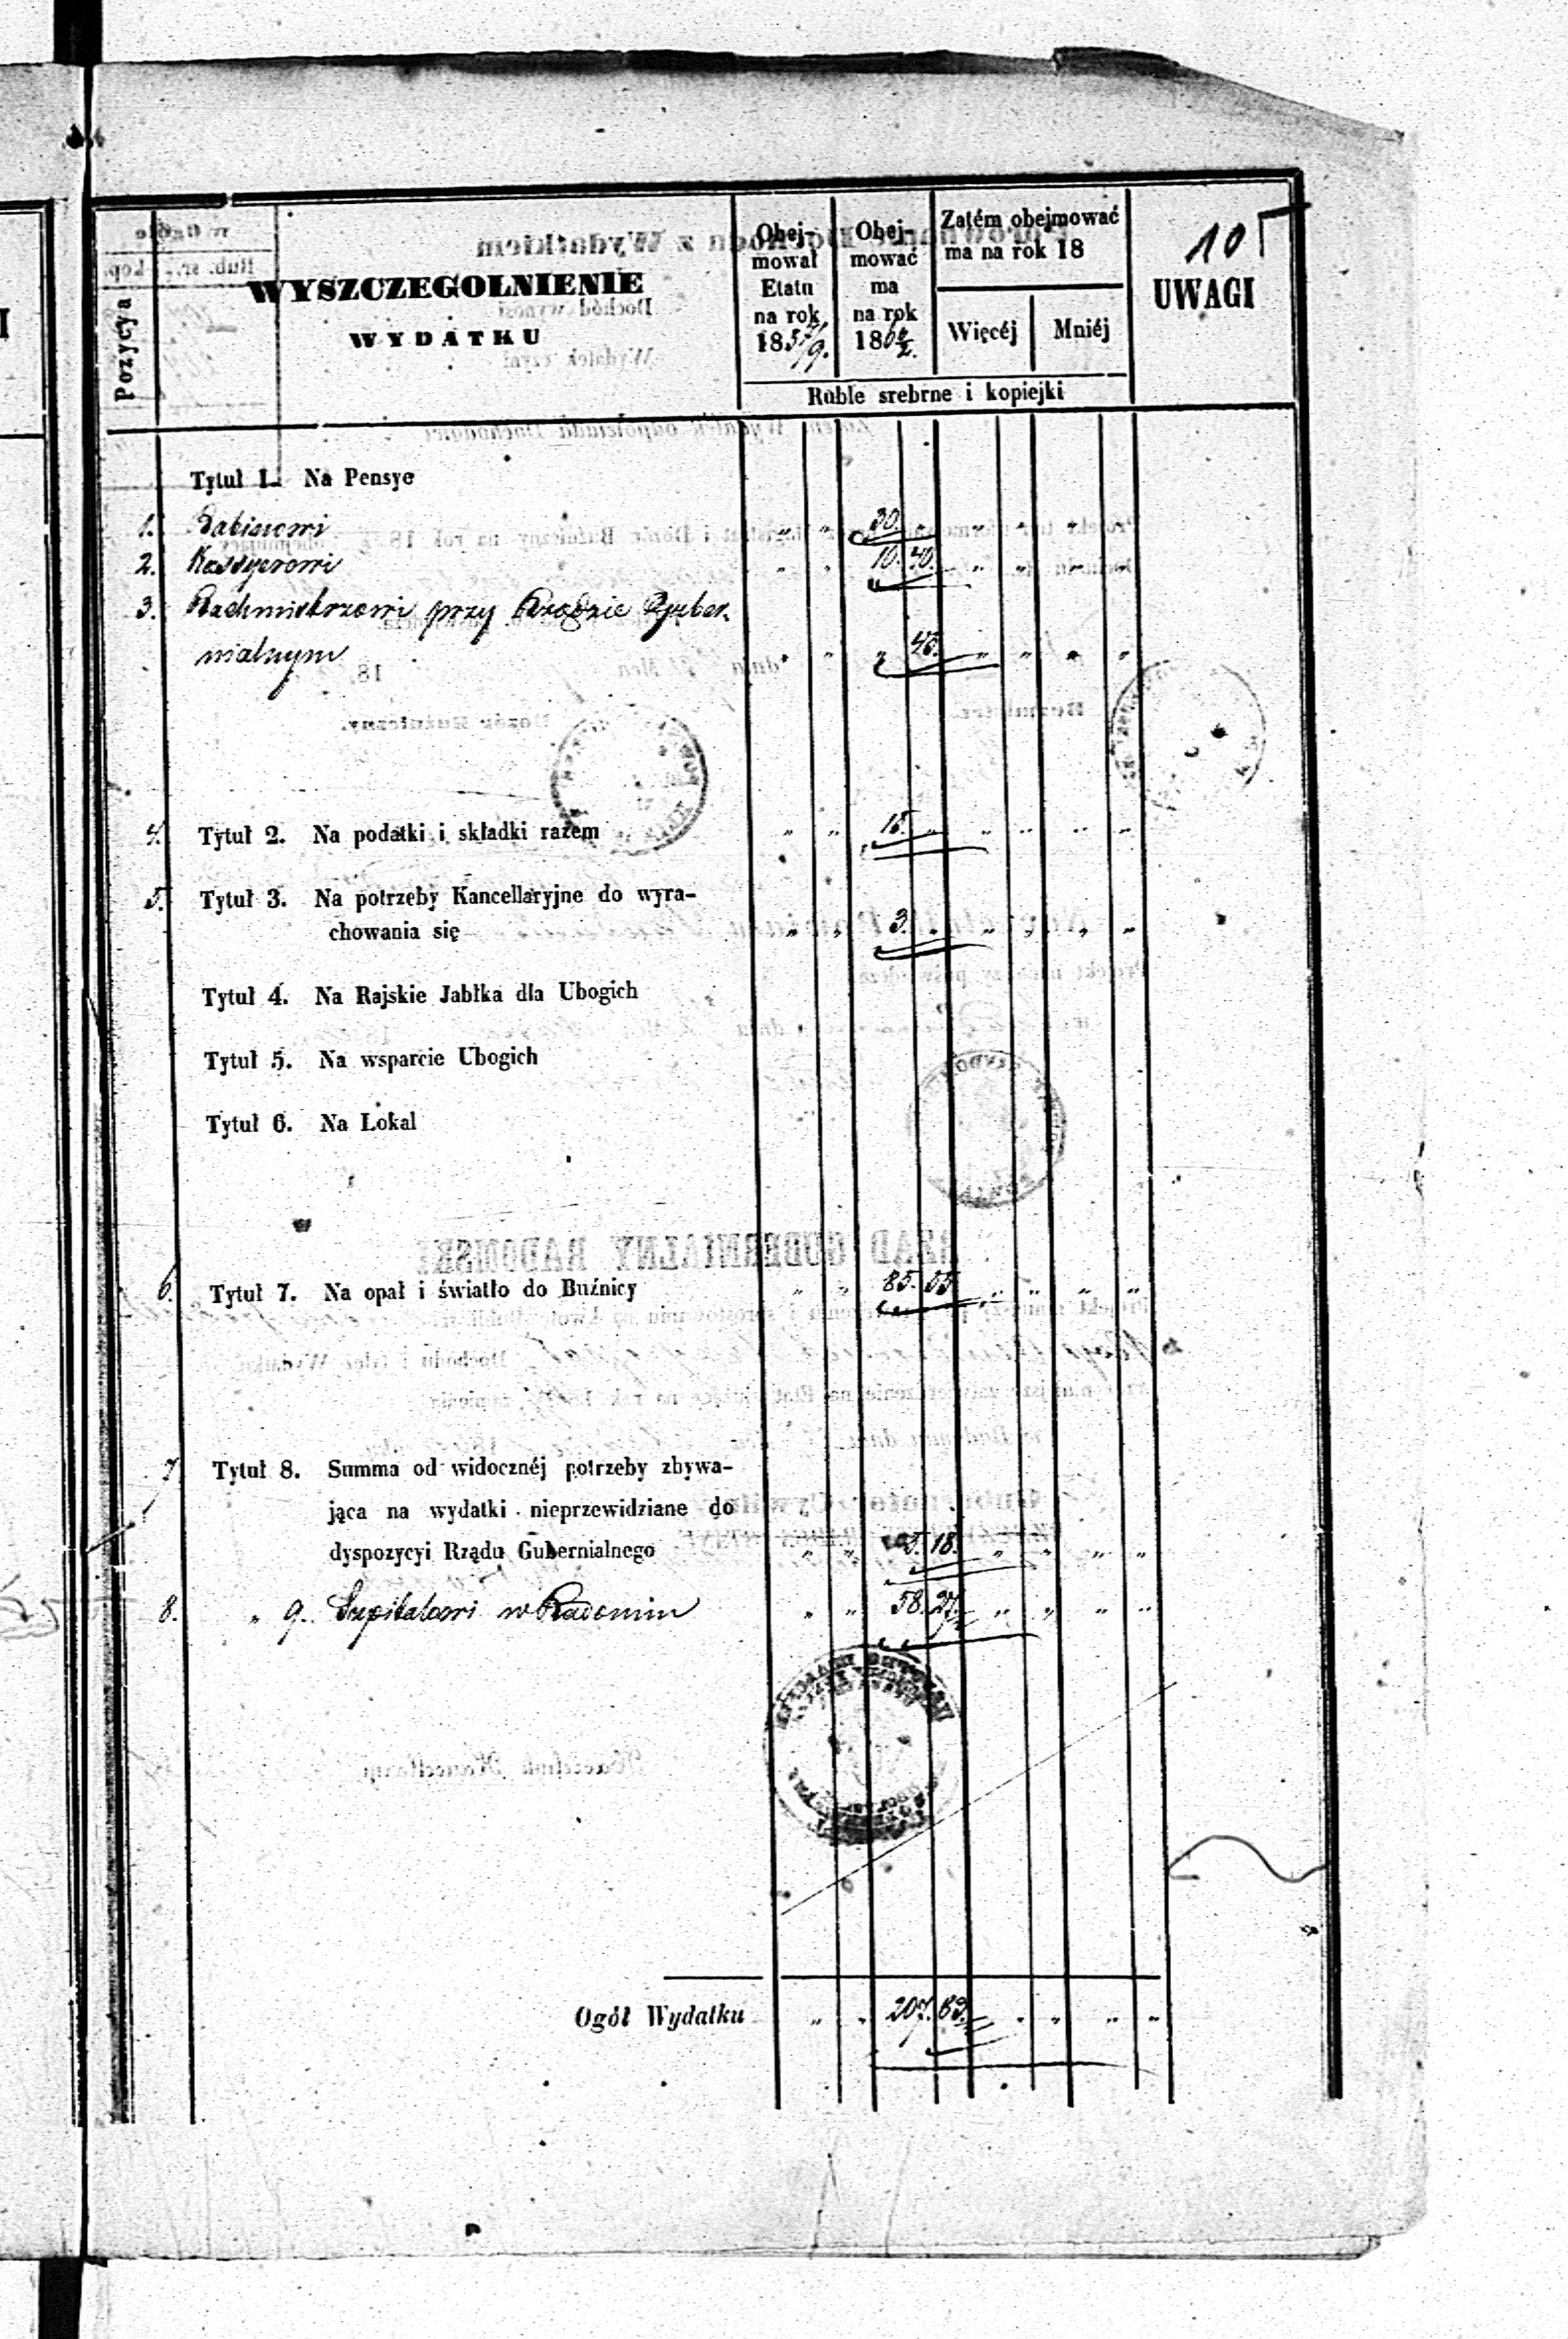 105
Pozycya
WYSZCZEGOLNIENIE
WYDATKU
Obej-
mował
Etatu
na rok
1857/9.
Obej-
mować
ma
na rok
1860/2.
Zatém obejmować
ma na rok 18
Więcéj
Mniéj
Ruble srebrne i kopiejki
UWAGI
Tytuł 1. Na Pensye
1. Rabinowi " " 30. " " " " "
2. Kassyerowi " " 10. 40. " " " "
3. Rachmistrzowi przy Rządzie Guber.
nialnym " " " 45. " " " "
4. Tytuł 2. Na podatki i składki razem " " 15. " " " " "
5. Tytuł 3. Na potrzeby Kancellaryjne do wyra-
chowania się " " 3. " " " " "
Tytuł 4. Na Rajskie Jabłka dla Ubogich
Tytuł 5. Na wsparcie Ubogich
Tytuł 6. Na Lokal
6. Tytuł 7. Na opał i światło do Buźnicy " " 85. 55. " " " "
7. Tytuł 8. Summa od widocznéj potrzeby zbywa-
jąca na wydatki nieprzewidziane do
dyspozycyi Rządu Gubernialnego " " 5. 18. " " " "
8. " 9. Szpitalowi w Radomiu " " 58. 27 " " " "
Ogół Wydatku " " 207. 83 " " " "